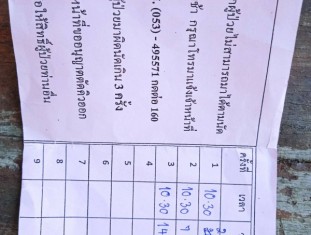 ผู้ป่วยไม่สามารถมาได้ตามนัด
กรุณาโทรมาแจ้งเจ้าหน้าที่
: (053) - 495571 กดต่อ 160
ผู้ป่วยมาผิดนัดเกิน 3 ครั้ง
หน้าที่ขออนุญาตตัดคิวออก
ให้สิทธิ์ผู้ป่วยท่านอื่น
ครั้งที่ เวลา
1 10.30
2 10.30
3 10.30 14
4
5
6
7
8
9